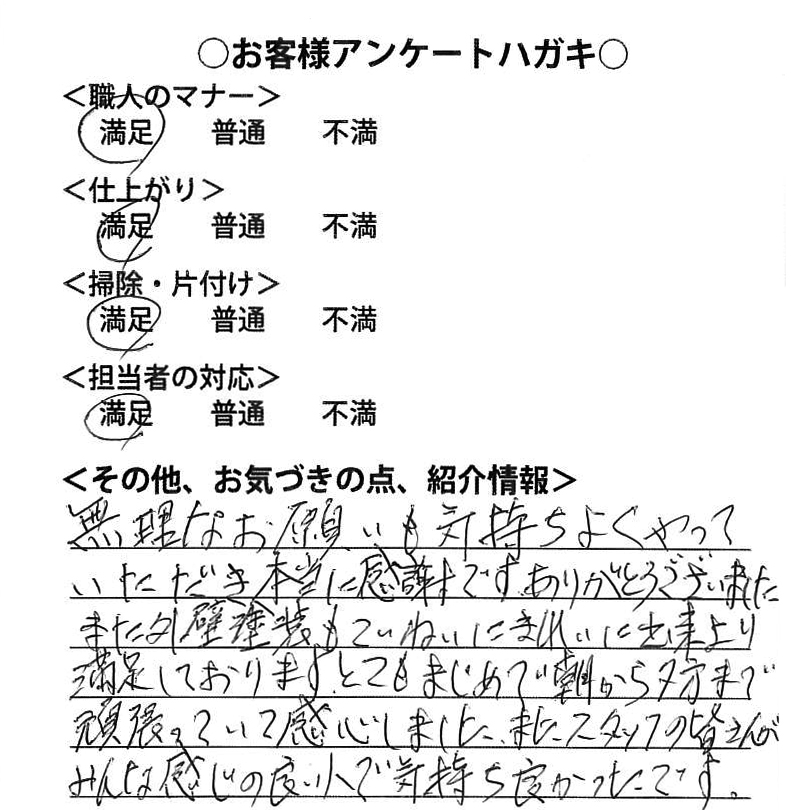 ○お客様アンケートハガキ○
＜職人のマナー＞
満足 普通 不満
＜仕上がり＞
満足 普通 不満
＜掃除・片付け＞
満足 普通 不満
＜担当者の対応＞
満足 普通 不満
＜その他、お気づきの点、紹介情報＞
無理なお願いも気持ちよくやって
いただき本当に感謝です。ありがとうございました
また外壁塗装もていねいにきれいに出来上り
満足しております。とてもまじめで朝から夕方まで
頑張っていて感心しました。またスタッフの皆さんが
みんな感じの良い人で気持ち良かったです。